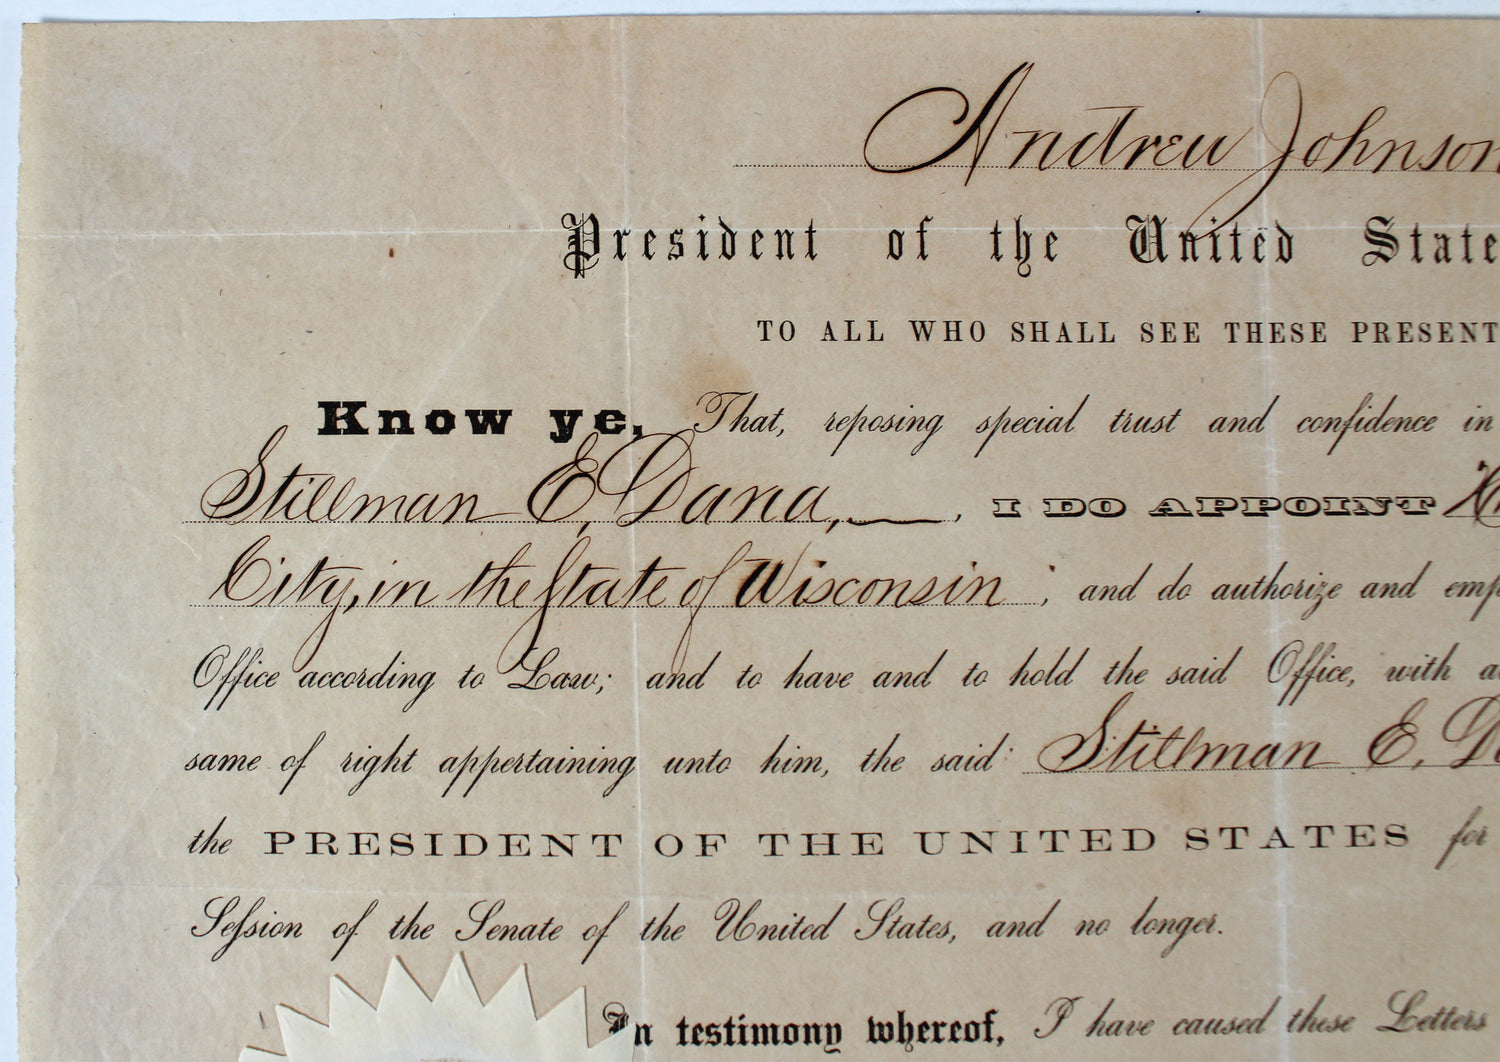 Andrew Johnson
President of the United State
TO ALL WHO SHALL SEE THESE PRESENT
Know ye, That, reposing special trust and confidence in
Stillman E. Dana, I DO APPOINT
City, in the State of Wisconsin; and do authorize and emp
Office according to Law; and to have and to hold the said Office, with a
same of right appertaining unto him, the said Stillman E. Da
the PRESIDENT OF THE UNITED STATES for
Session of the Senate of the United States, and no longer.
In testimony whereof, I have caused these Letters